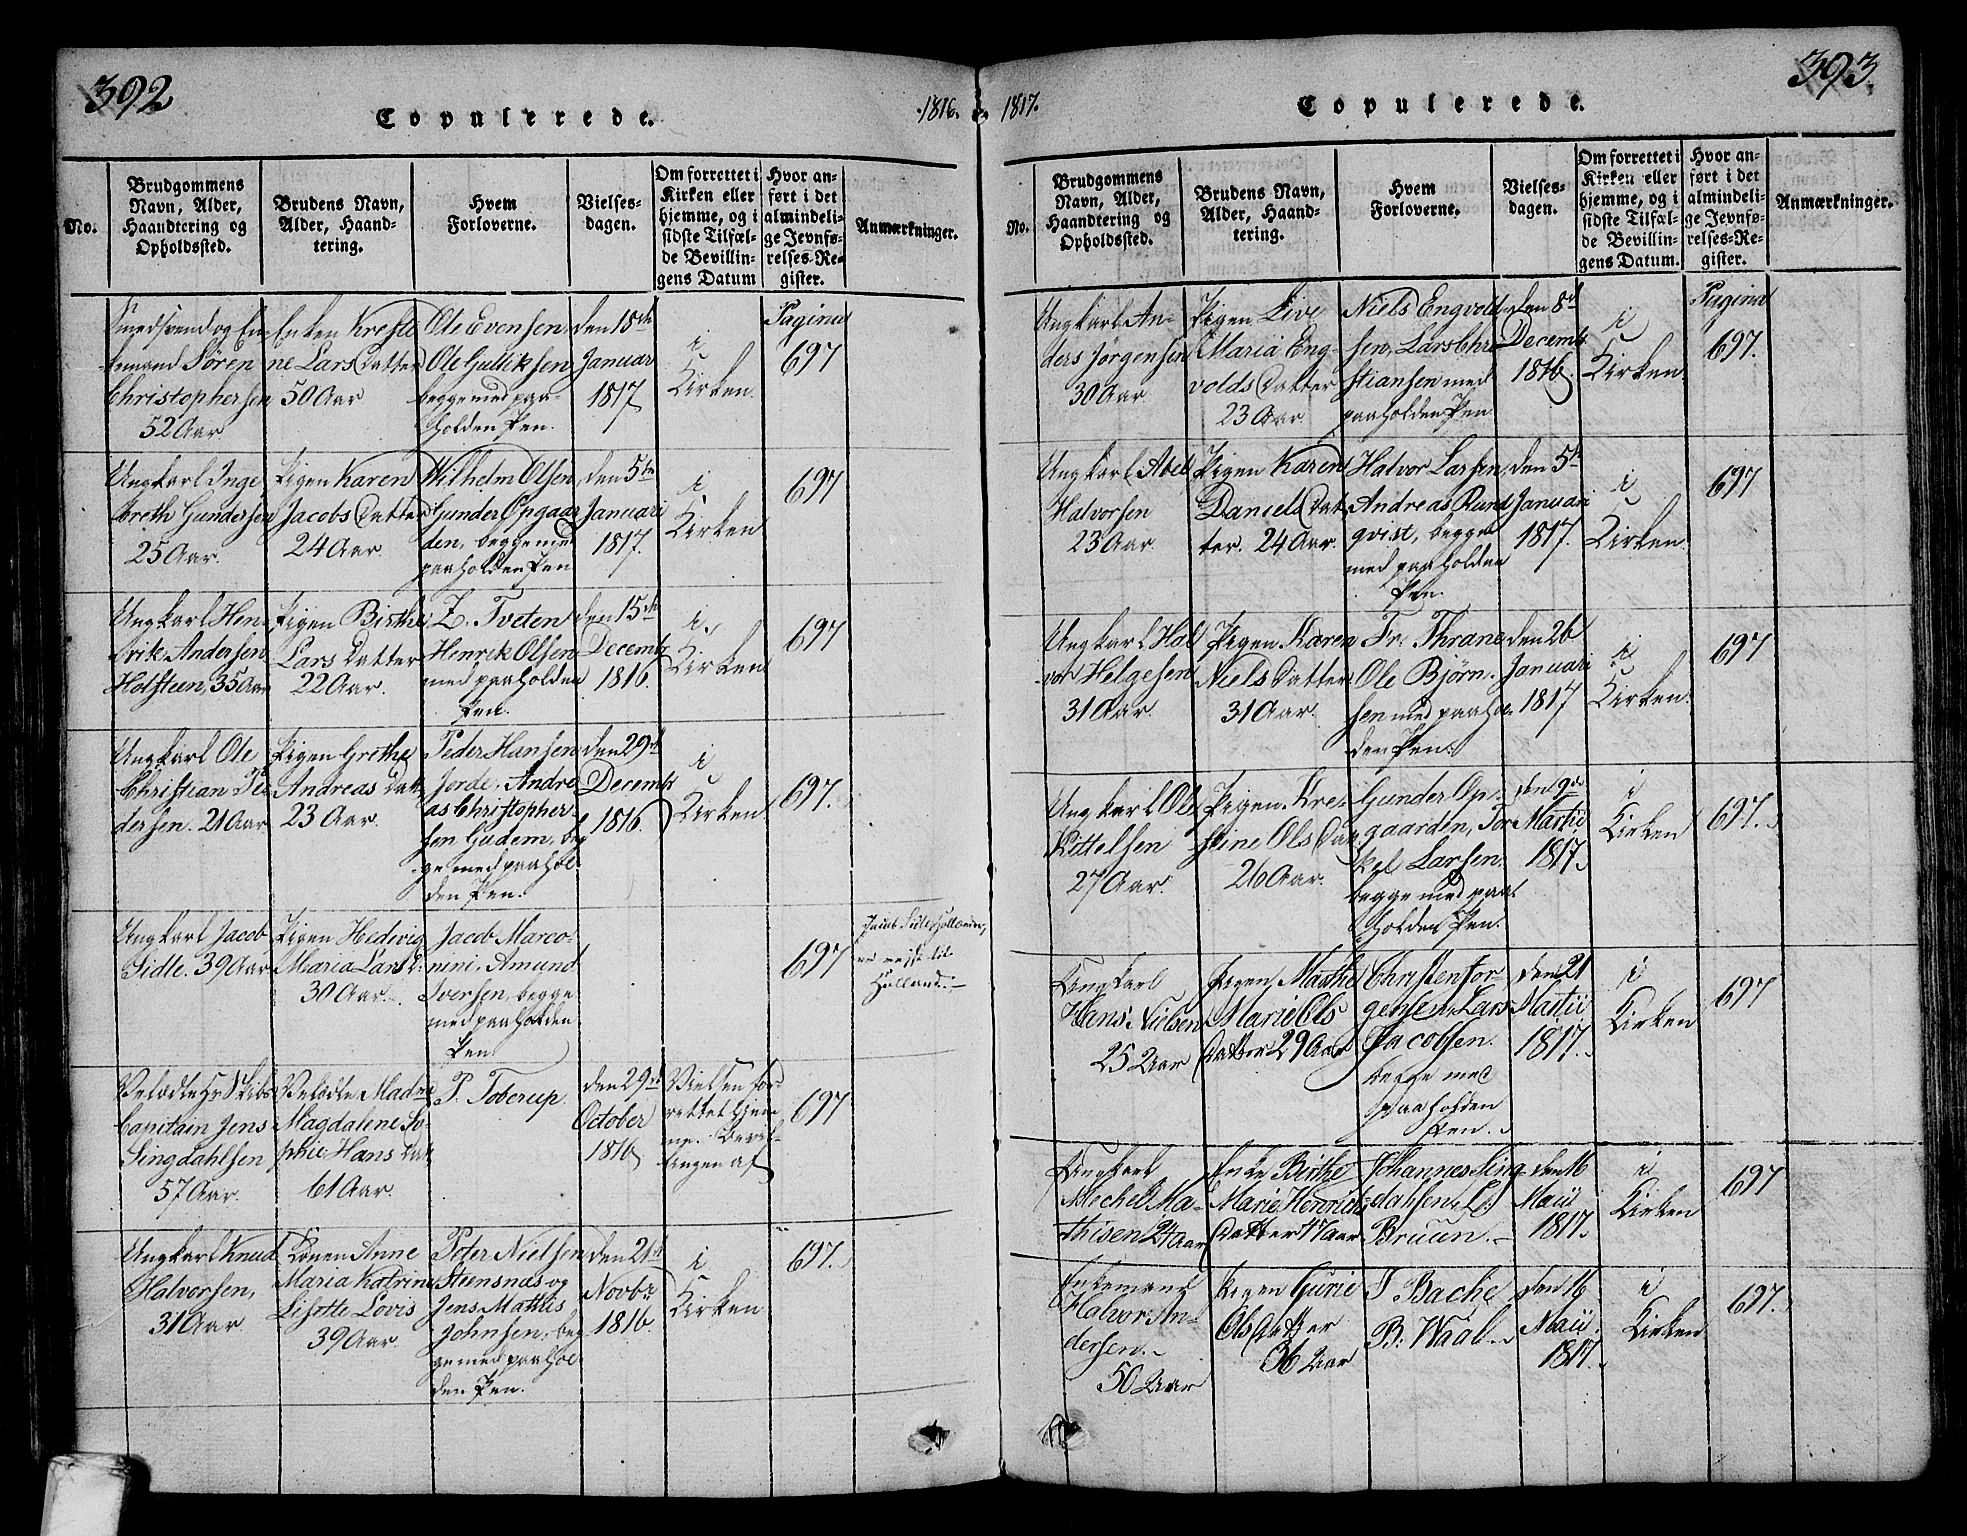 392
Copulerede.
1816. &
No.
Brudgommens Navn, Alder, Haandtering og Opholdssted.
Brudens Navn, Alder, Haandtering.
Hvem Forloverne.
Vielses-dagen.
Om forrettet i Kirken eller hjemme, og i sidste Tilfælde Bevillingens Datum
Hvor anført i det almindelige Jevnførelses-Register.
Anmærkninger.
Smedsvend og En-
kemand Sören
Christophersen
52 Aar
Enken Kresti-
ne Lars Datter
50 Aar
Ole Evensen
Ole Gulliksen
begge med paa-
holden Pen.
den 18de
Januari
1817
i
Kirken.
Pagina
697
Ungkarl Inge
breth Gundersen
25 Aar.
Pigen Karen
Jacobs Datter
24 Aar
Wilhelm Olsen,
Gunder Opgaar
den, begge med
paaholden Pen
den 5te
Januari
1817.
i
Kirken
697
Ungkarl Hen-
rik Andersen
Holsteen, 35 Aar
Pigen Birthe
Lars Datter
22 Aar.
Z. Tveten
Henrik Olsen
med paaholden
Pen.
den 15de
Decembr
1816.
i
Kirken
697
Ungkarl Ole
Christian Pe-
dersen. 21 Aar
Pigen Grethe
Andreas Datt
23 Aar.
Peder Hansen
Jorde, Andre
as Christopher
sen Gudem, be
ge med paahol-
den Pen.
den 29de
Decembr
1816.
i
Kirken
697.
Ungkarl Jacob
Sidle. 39 Aar
Pigen Hedevig
Maria Lars D.
30 Aar.
Jacob Marco-
nini, Amund
Iversen, begge
med paaholden
Pen.
697
Holland.
Velædle Hr Skibs
Capitain Jens
Singdahlsen
57 Aar.
Velædle Madme
Magdalene So
phie Hans Dat
61 Aar.
P. Toberup.
den 29de
October
1816
Vielsen for-
rettet hjem
me. Bevil-
lingen af
697
Ungkarl Knud
Halvorsen,
31 Aar
Konen Anne
Maria Katrine
Lisette Lovis
39 Aar.
Peter Nielsen
Steensnas og
Jens Mathis
Johnsen, beg
ge med paahol-
den Pen.
den 21de
Novbr
1816.
i
Kirken
697.
1817.
Copulerede.
393.
No.
Brudgommens Navn, Alder, Haandtering og Opholdssted.
Brudens Navn, Alder, Haandtering.
Hvem Forloverne.
Vielses-dagen.
Om forrettet i Kirken eller hjemme, og i sidste Tilfælde Bevillingens Datum.
Hvor anført i det almindelige Jevnførelses-Register.
Anmærkninger.
Ungkarl An-
ders Jörgensen
30 Aar
Pigen Live
Maria Eng-
volds Datter
23 Aar.
Niels Engvold
sen, Lars Chri
stiansen med
paaholden Pen
den 8de
Decembr
1816.
i
Kirken.
Pagina
697.
Ungkarl Abel
Halvorsen
23 Aar.
Pigen Karen
Daniels Dat
ter. 24 Aar.
Halvor Larsen,
Andreas Rund
qvist, begge
med paaholden
Pen.
den 5te
Januari
1817.
i
Kirken.
697
Ungkarl Hal
vor Helgesen
31 Aar.
Pigen Karen
Niels Datter
31 Aar.
Fr. Thrane
Ole Björn-
sen med paahol
den Pen.
den 26
Januari
1817
i
Kirken.
697
Ungkarl Ole
Kittelsen
27 Aar.
Pigen Kre
stine Ols Dat.
26 Aar.
Gunder Op-
gaarden, Tor
kel Larsen.
begge med paa
holden Pen.
den 9de
Martii
1817.
i
Kirken
697.
Ungkarl
Hans Nielsen
25 Aar
Pigen Marthe
Marie Ols
Datter 29 Aar
Christen Jor-
gensen, Lars
Jacobsen.
begge med
paaholden
Pen.
den 21
Martii
1817.
i
Kirken
697
Ungkarl
Michel Ma-
thisen 24 Aar
Enke Birthe
Marie Henrichs
Datter 47 Aar
Johannes Sing
dahlsen, L:
Bruun.
den 16
Maii
1817.
i
Kirken
697
Enkemand
Halvor An-
dersen.
50 Aar
Pigen Gurie
Ols Datter
36 Aar
J Bache
B. Waal.
den 16
Maii
1817.
i
Kirken
697.